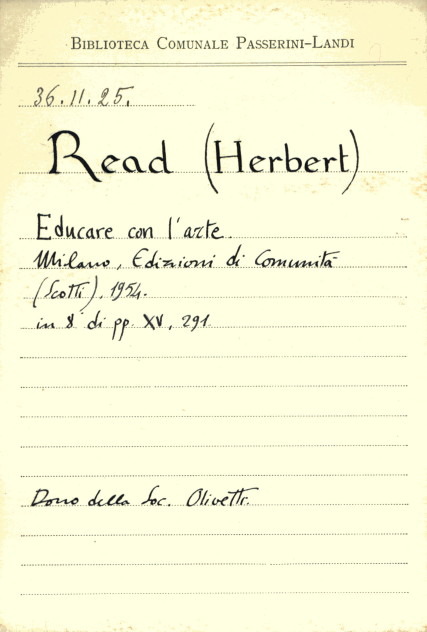 BIBLIOTECA COMUNALE PASSERINI-LANDI
36.11.25.
Read (Herbert)
Educare con l'arte.
Milano, Edizioni di Comunità
(Scotti), 1954.
in 8° di pp. XV, 291.
Dono della Soc. Olivetti.